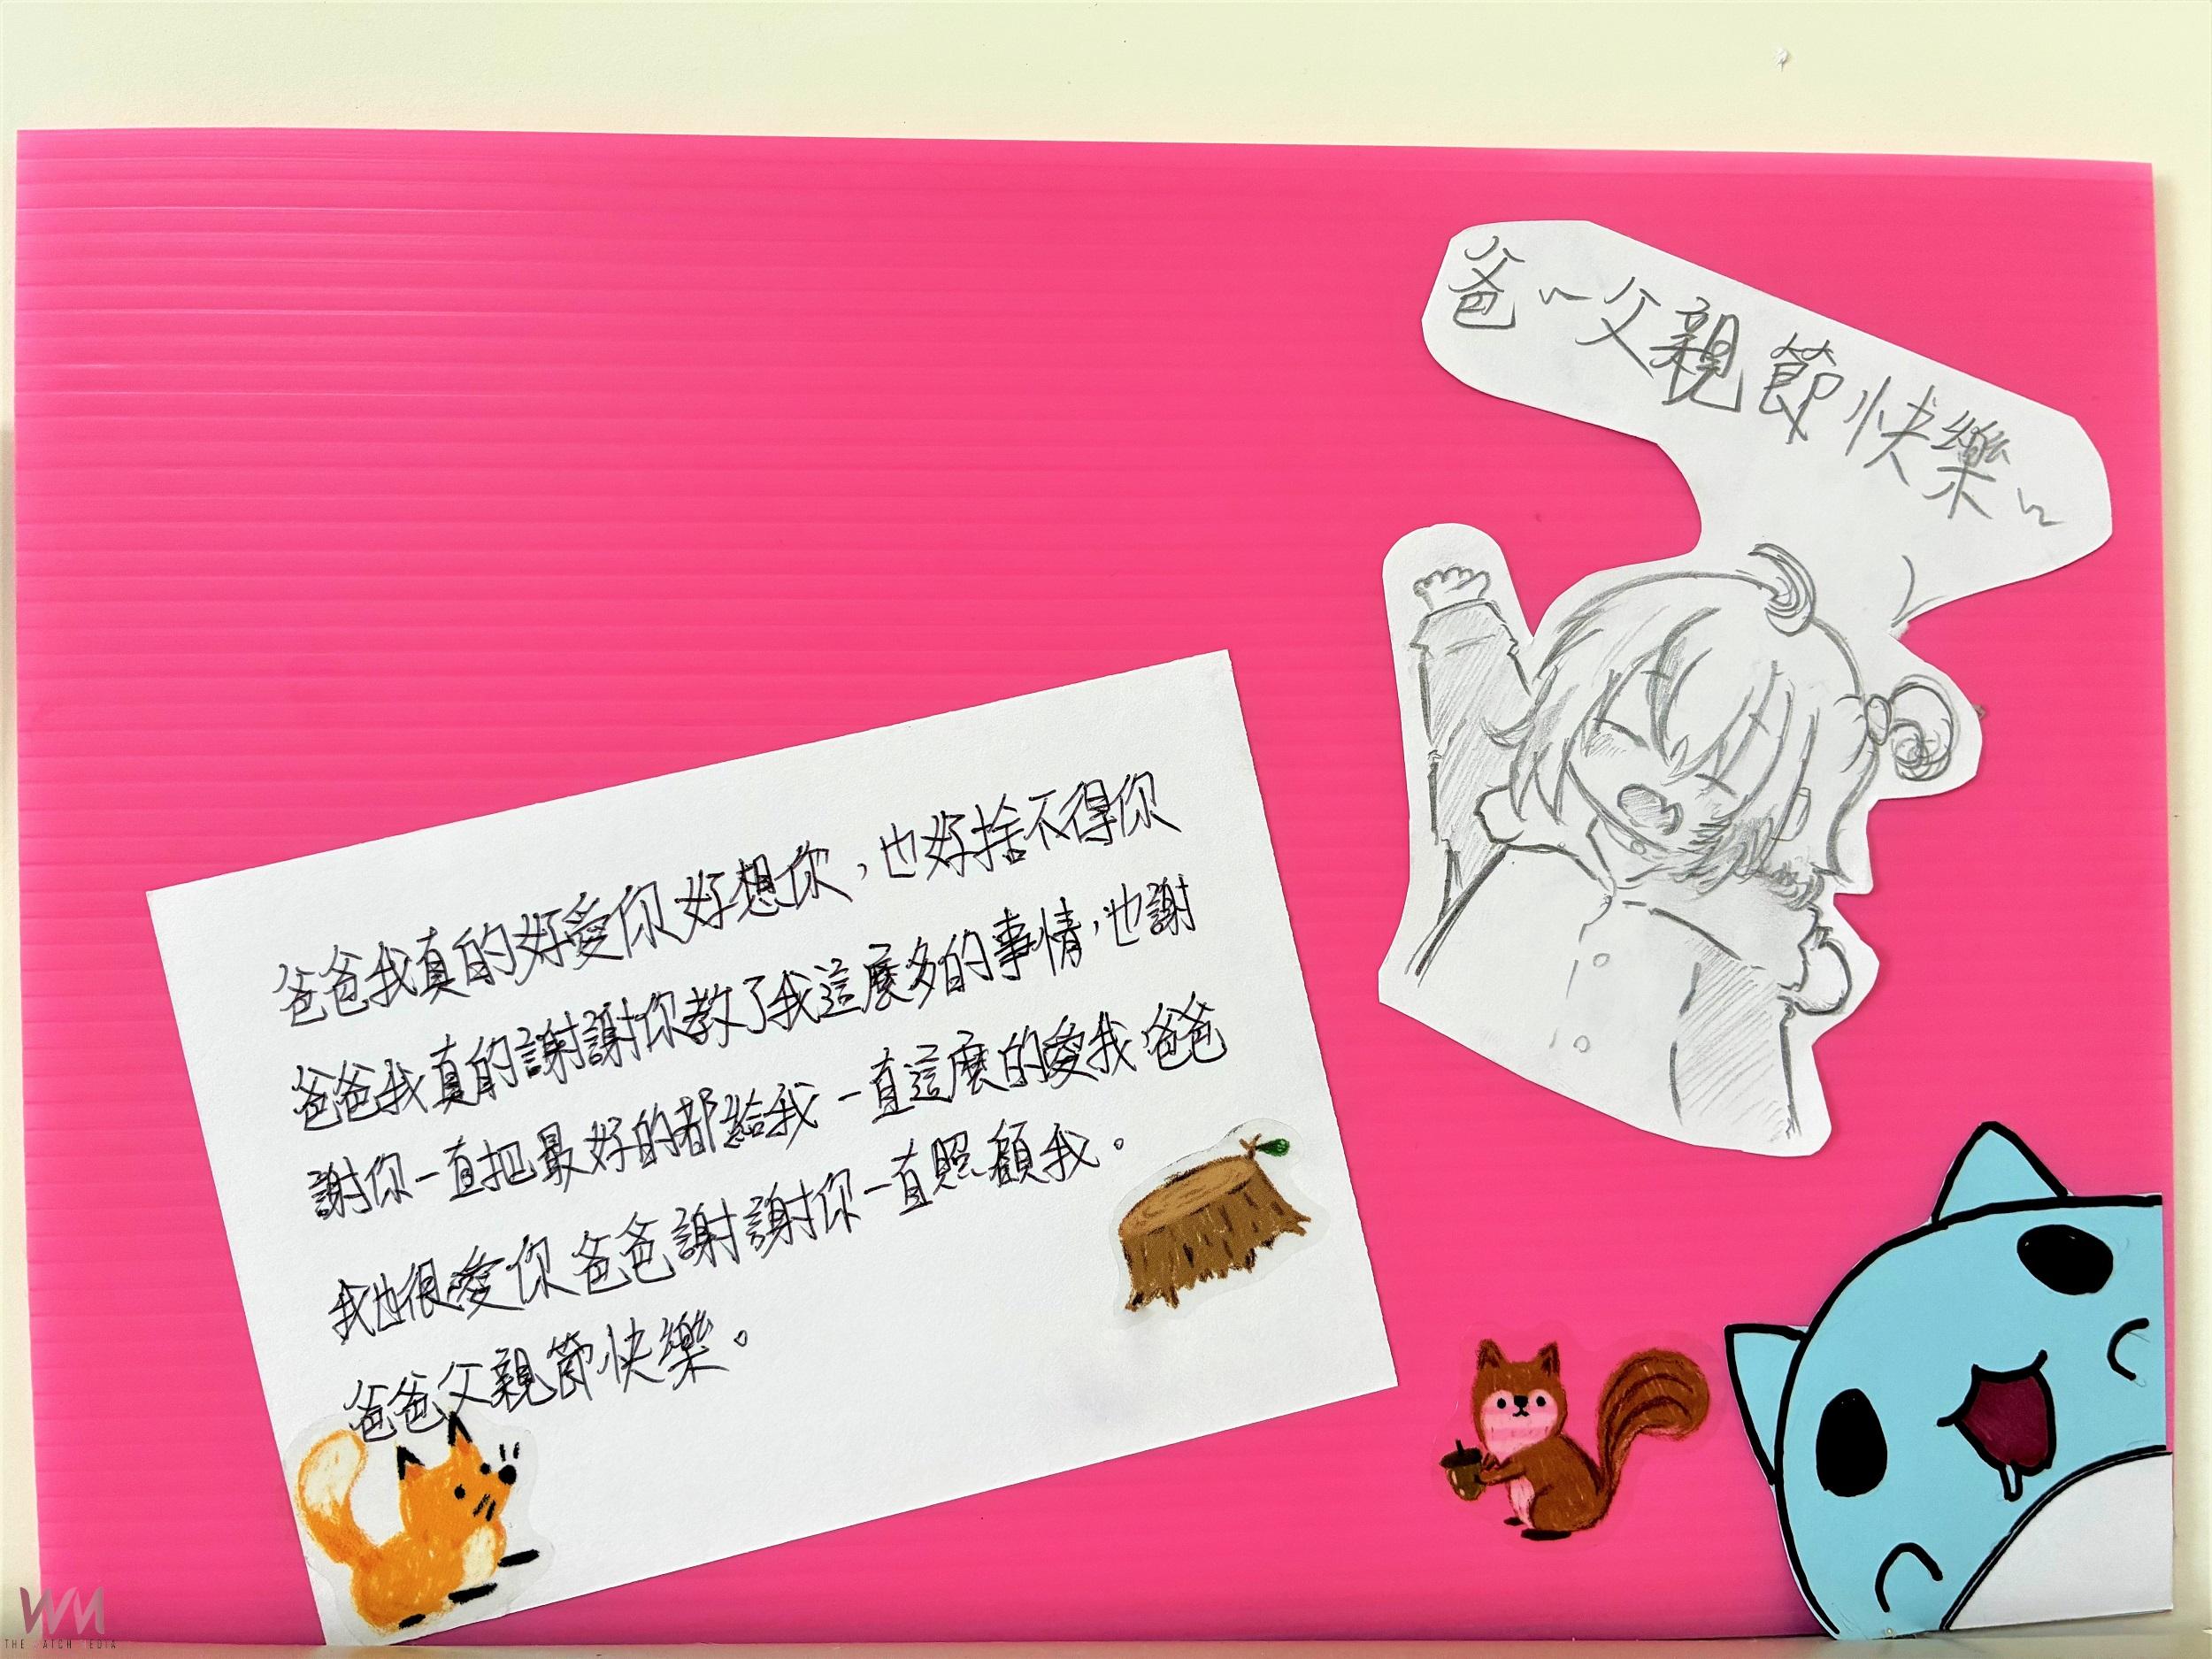 爸~父親節快樂~
爸爸我真的好愛你好想你，也好捨不得你
爸爸我真的謝謝你教了我這麼多的事情，也謝
謝你一直把最好的都給我一直這麼的愛我爸爸
我也很愛你爸爸謝謝你一直照顧我。
爸爸父親節快樂。
WM
THE WATCH MEDIA